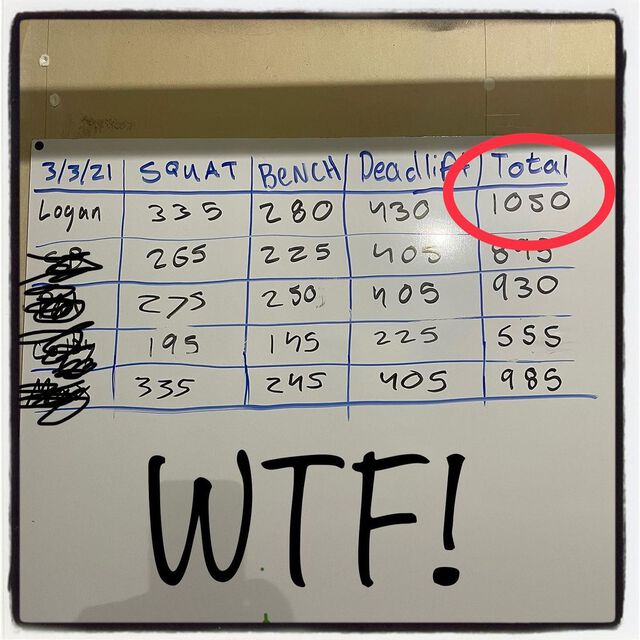 3/3/21 SQUAT BENCH Deadlift Total
Logan 335 280 430 1050
265 225 405 895
275 250 405 930
195 145 225 555
335 245 405 985
WTF!